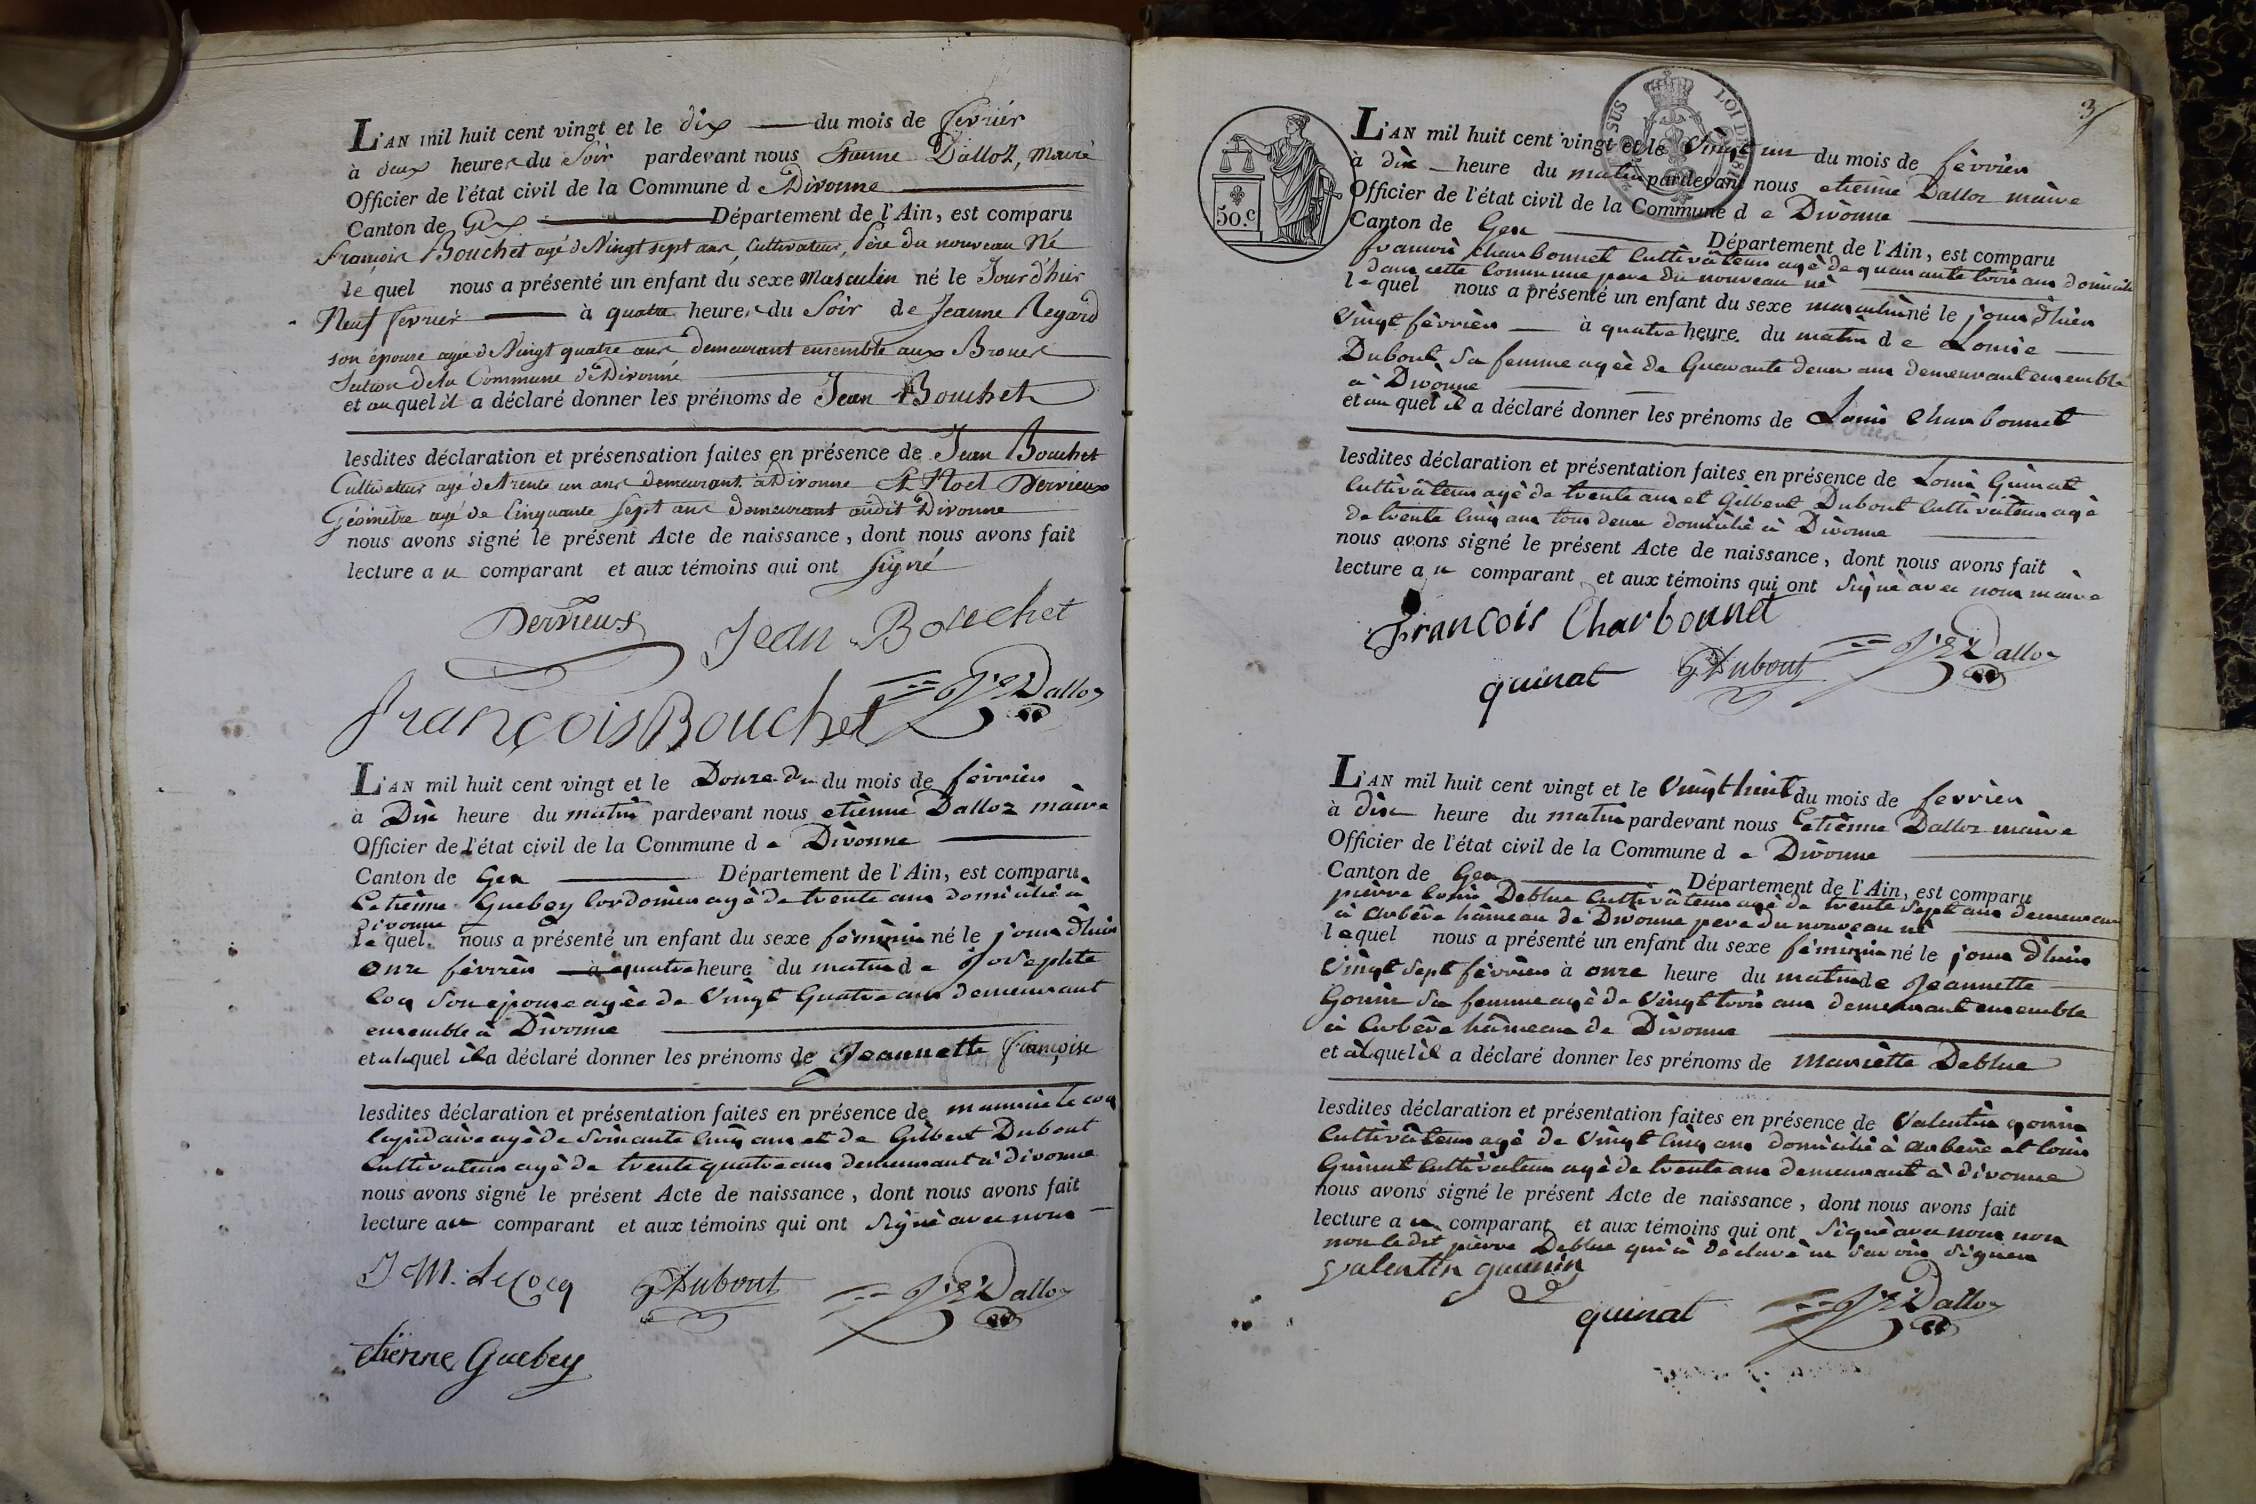 L'AN mil huit cent vingt et le dix du mois de fevrier
à deux heures du Soir pardevant nous Etienne Dalloz, Maire
Officier de l'état civil de la Commune de Divonne
Canton de Gex Département de l'Ain, est comparu
François Bouchet agé de Vingt sept ans, Cultivateur, Père du nouveau Né
le quel nous a présenté un enfant du sexe Masculin né le Jour d'hier
Neuf fevrier à quatre heures du Soir de Jeanne Regard
son épouse agée de Vingt quatre ans demeurant ensemble aux
Section de la Commune de Divonne
et au quel il a déclaré donner les prénoms de Jean Bouchet
lesdites déclaration et présensation faites en présence de Jean Bouchet
Cultivateur agé de trente un ans demeurant à Divonne Et Noel Dervieux
Géomètre agé de Cinquante Sept ans demeurant audit Divonne
nous avons signé le présent Acte de naissance, dont nous avons fait
lecture au comparant et aux témoins qui ont Signé
Dervieux Jean Bouchet
François Bouchet Dalloz
L'AN mil huit cent vingt et le Douze du du mois de fèvrier
à Dix heure du matin pardevant nous etienne Dalloz maire
Officier de l'état civil de la Commune de Divonne
Canton de Gex Département de l'Ain, est comparu
Etienne Guebey Cordonier agè de trente ans domicilié à
divonne
le quel nous a présenté un enfant du sexe féminin né le jour d'huir
onze fèvrier a quatre heure du matin de Josephte
coq son epouse agèe de Vingt Quatre ans demeurant
ensemble à Divonne
et a laquel il a déclaré donner les prénoms de Jeannette françoise
lesdites déclaration et présentation faites en présence de maurice le coq
lapidaire agè de Soixante Cinq ans et de Gilbert Dubout
Cultivateur agè de trente quatre ans demeurant à divonne
nous avons signé le présent Acte de naissance, dont nous avons fait
lecture au comparant et aux témoins qui ont Signè avec nous
J M: LeCocq G Dubout Dalloz
etienne Guebey
3
SUS LOI DE 18
50.c
L'AN mil huit cent vingt et le Vingt un du mois de fèvrier
à dix heure du matin pardevant nous etienne Dalloz maire
Officier de l'état civil de la Commune de Divonne
Canton de Gex Département de l'Ain, est comparu
francois charbonnet Cultivateur agè de quarante trois ans domicilié
dans cette Commune pere du nouveau nè
le quel nous a présenté un enfant du sexe masculin né le jour d'hier
Vingt fèvrier à quatre heure du matin de Louise
Dubout Sa femme agèe de Quarante deux ans demeurant ensemble
à Divonne
et au quel il a déclaré donner les prénoms de Louis Charbonnet
lesdites déclaration et présentation faites en présence de Louis Guinat
Cultivateur agè de trente ans et Gilbert Dubout Cultivateur agè
de trente Cinq ans tous deux domicilié à Divonne
nous avons signé le présent Acte de naissance, dont nous avons fait
lecture au comparant et aux témoins qui ont Signè avec nous maire
Francois Charbonnet
quinat G Dubout Dalloz
L'AN mil huit cent vingt et le Vingt huit du mois de fevrier
à dix heure du matin pardevant nous Etienne Dalloz maire
Officier de l'état civil de la Commune de Divonne
Canton de Gex Département de l'Ain, est comparu
pierre Louis Deblue Cultivateur agè de trente Sept ans demeurant
à arbère hâmeau de Divonne pere du nouveau nè
le quel nous a présenté un enfant du sexe féminin né le jour d'huir
Vingt Sept fèvrier à onze heure du matin de Jeannette
Gonin Sa femme agè de Vingt trois ans demeurant ensemble
à arbère hâmeau de Divonne
et àl quel il a déclaré donner les prénoms de mariette Deblue
lesdites déclaration et présentation faites en présence de Valentin gonin
Cultivateur agè de Vingt Cinq ans domicilié à arbère et louis
Guinat Cultivateur agè de trente ans demeurant à divonne
nous avons signé le présent Acte de naissance, dont nous avons fait
lecture au comparant et aux témoins qui ont Signè avec nous non
non le dit pierre Deblue qui à dèclarè ne Savoir Signer
Valentin gounin
quinat Dalloz